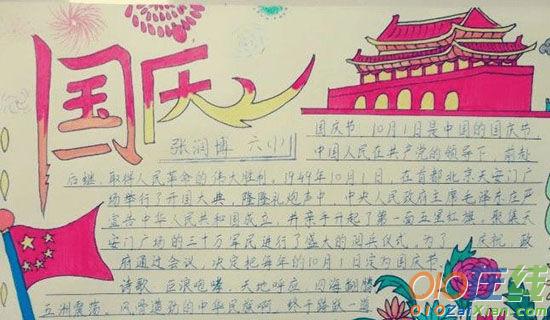 国庆
张润博 六(1)
国庆节 10月1日是中国的国庆节
中国人民在共产党的领导下，前赴
后继，取得人民革命的伟大胜利，1949年10月1日，在首都北京天安门广
场举行了开国大典，隆隆礼炮声中，中央人民政府主席毛泽东庄严
宣告中华人民共和国成立，并亲手升起了第一面五星红旗，聚集天
安门广场的三十万军民进行了盛大的阅兵仪式，为了 庆祝，政
府通过会议 决定把每年的10月1日定为国庆节。
诗歌 巨浪咆哮，天地呼应 四海翻腾
五洲震荡，风雷激动的中华民族啊
在线
ZaiXian.com